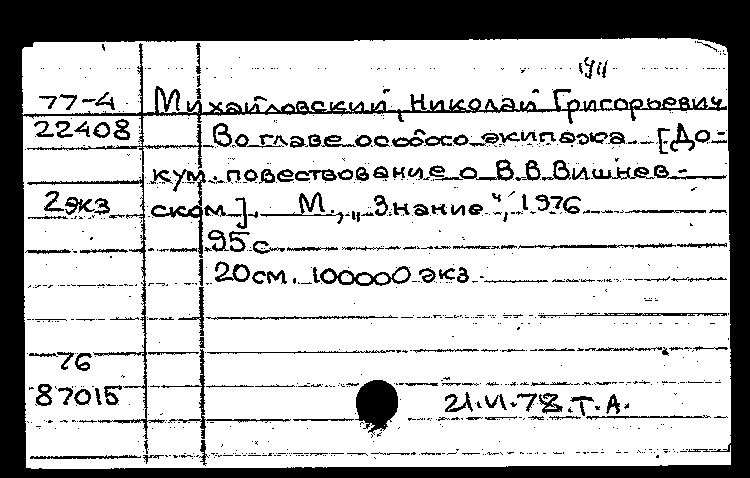 77-4 Михайловский, Николай Григорьевич
22408 Во главе особого экипажа [До-
кум. повествование о В.В.Вишнев-
2экз ском]. М., „Знание“, 1976
95 с
20см. 100000 экз.
76
87015 21.VI.78.Т.А.